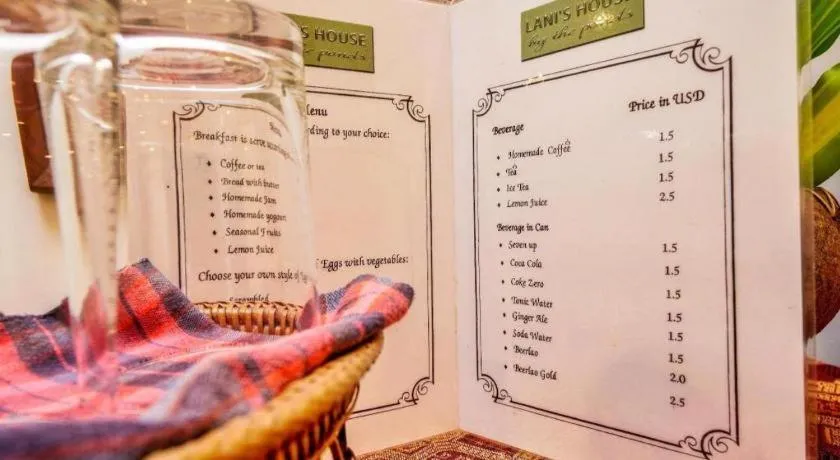 S HOUSE
the ponds
Menu
Breakfast is serve according to your choice:
Coffee or tea
Bread with butter
Homemade Jam
Homemade yogourt
Seasonal Fruits
Lemon Juice
Choose your own style of Eggs with vegetables:
Scrambled
LANI'S HOUSE
by the ponds
Price in USD
Beverage
Homemade Coffee 1.5
Tea 1.5
Ice Tea 1.5
Lemon Juice 2.5
Beverage in Can
Seven up 1.5
Coca Cola 1.5
Coke Zero 1.5
Tonic Water 1.5
Ginger Ale 1.5
Soda Water 1.5
Beerlao 2.0
Beerlao Gold 2.5